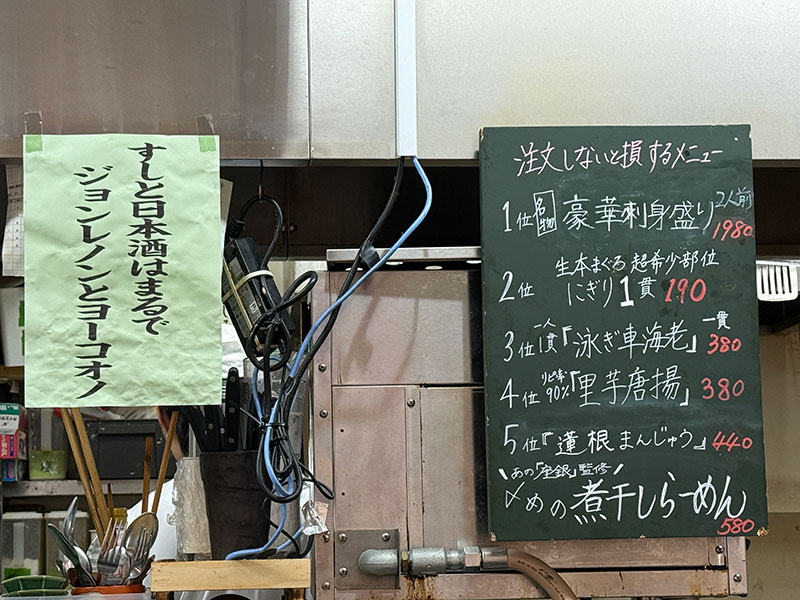 すしと日本酒はまるで
ジョンレノンとヨーコオノ
注文しないと損するメニュー
1位 名物 豪華刺身盛り 2人前 1980
生本まぐろ 超希少部位
2位 にぎり1貫 190
3位 一人1貫「泳ぎ車海老」一貫 380
4位 リピ率90%「里芋唐揚」380
5位『蓮根まんじゅう』440
\あの「座銀」監修/
〆めの煮干しらーめん
580